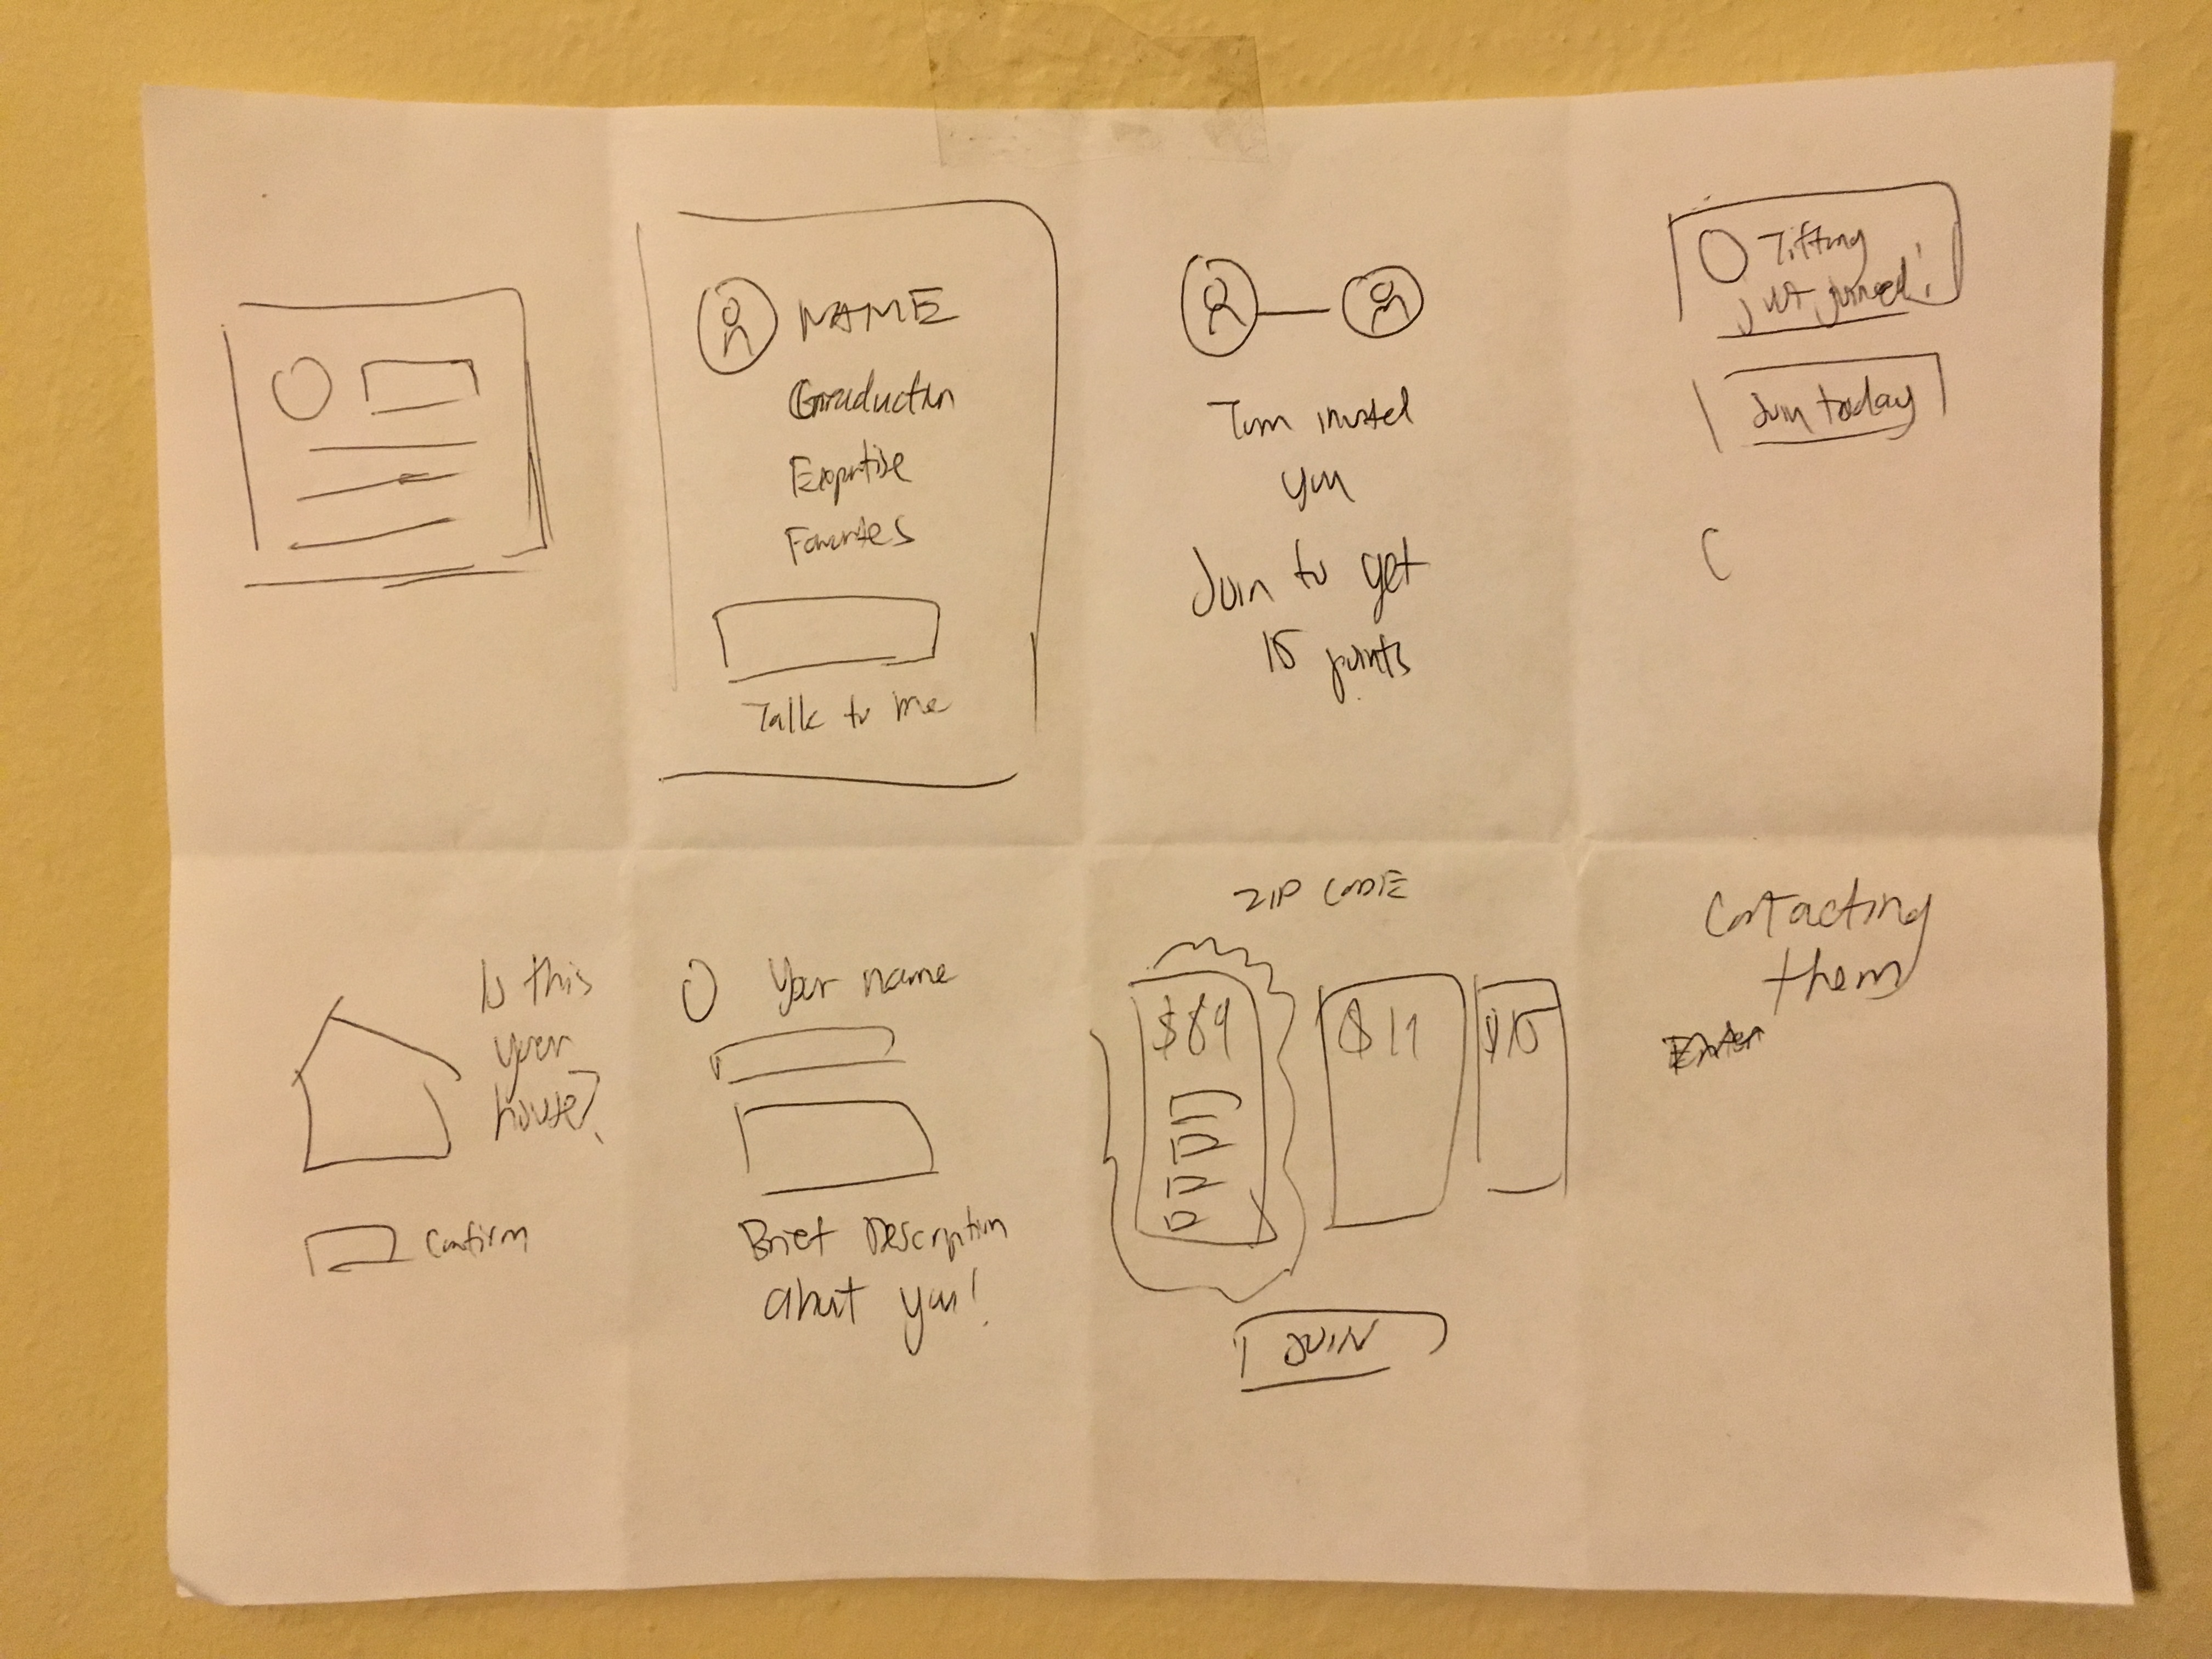 NAME
Graduation
Expertise
Favorites
Talk to me
Tom invited
you
Join to get
15 points
Tiffany
just joined!
Join today
Is this
your
house?
Confirm
Your name
Brief Description
about you!
ZIP CODE
$89
$19
$15
JOIN
Contacting
them
Enter